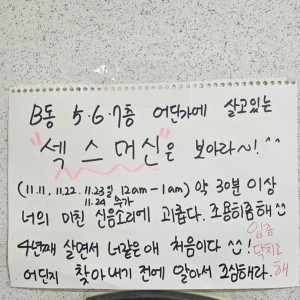 B동 5·6·7층 어딘가에 살고있는
"섹스머신"은 보아라~! ^^
(11.11, 11.22, 11.23일, 12am-1am) 약 30분 이상
11.24 추가
너의 미친 신음소리에 괴롭다. 조용히좀해
4년째 살면서 너같은애 처음이다 ^^!
입좀
닥치고
해
어딘지 찾아내기 전에 알아서 조심해라.